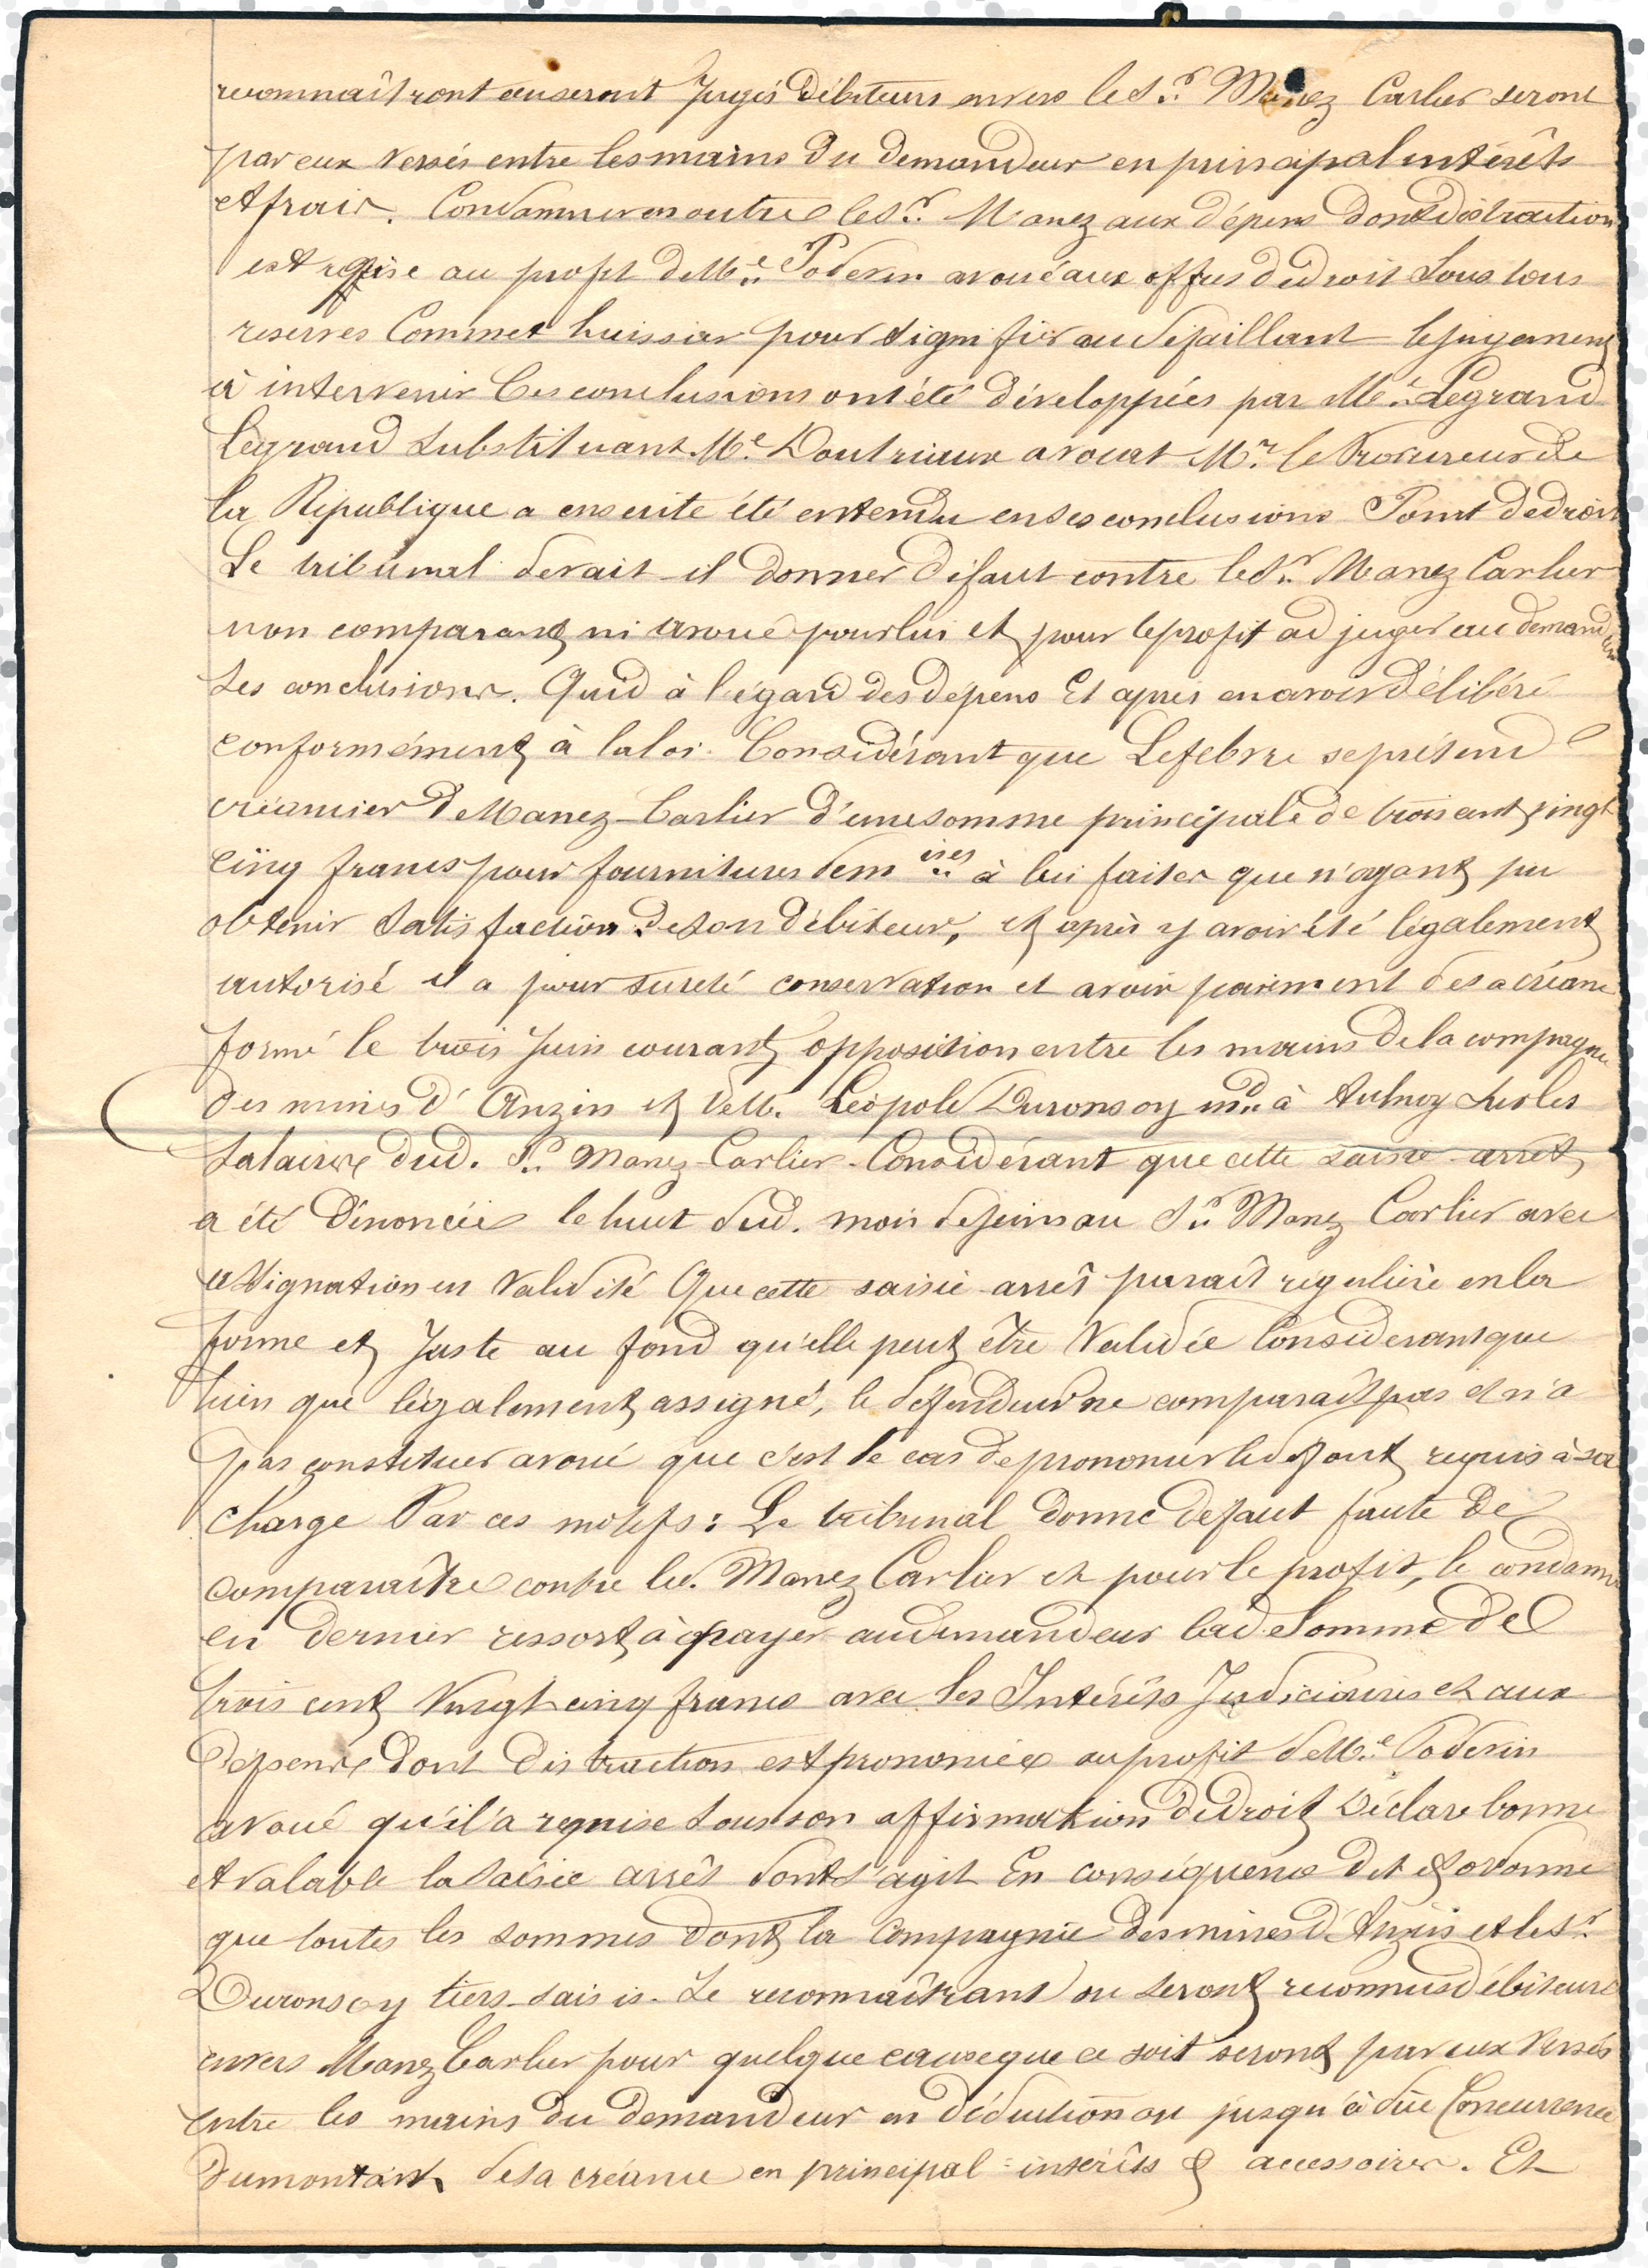 reconnaîtront ou seront Jugés Débiteurs envers le Sr. Manez Carlier seront
par eux versés entre les mains du demandeur en principal intérêts
et frais. Condamner en outre le Sr. Manez aux dépens dont distraction
est requise au profit de Me. Poderin avoué aux offres de droit Sous tous
reserves Commet huissier pour signifier au defaillant le jugement
à intervenir Ces conclusions ont été développées par Me. Legrand
Legrand substituant Me. Doutriaux avocat Mr. le Procureur de
la République a ensuite été entendu en ses conclusions Point de droit
Le tribunal devait-il donner défaut contre le Sr. Manez Carlier
non comparant ni avoué pour lui et pour le profit adjuger au demandeur
ses conclusions. Quid à l'égard des dépens Et après en avoir délibéré
conformément à la loi. Considérant que Lefebvre se prétend
créancier de Manez-Carlier d'une somme principale de trois cent vingt
cinq francs pour fournitures de m ises à lui faites que n'ayant pu
obtenir satisfaction de son débiteur, et après y avoir été légalement
autorisé il a pour sureté conservation et avoir paiement de sa créance
formé le trois Juin courant opposition entre les mains de la compagnie
des mines d'Anzin et de M. Léopold Duronsoy md. à Aulnoy sur les
salaires dud. Sr. Manez-Carlier. Considérant que cette saisie-arrêt
a été dénoncée le huit dud. mois de juin au Sr. Manez Carlier avec
assignation en validité Que cette saisie-arrêt parait régulière en la
forme et Juste au fond qu'elle peut être validée Considerant que
bien que légalement assigné, le défendeur ne comparaît pas et n'a
pas constitué avoué que c'est le cas de prononcer le défaut requis à sa
charge Par ces motifs: Le tribunal donne defaut faute de
comparaître contre led. Manez Carlier et pour le profit, le condamne
en dernier ressort à payer au demandeur lad. Somme de
trois cent vingt cinq francs avec les Intérêts Judiciaires et aux
Dépens dont distraction est prononcée au profit de Me. Poderin
avoué qu'il a requise sous son affirmation de droit Déclare bonne
et valable la saisie arrêt dont s'agit En conséquence dit & ordonne
que toutes les sommes dont la Compagnie des mines d'Anzin et le Sr.
Duronsoy tiers-saisis. Se reconnaîtront ou seront reconnus débiteurs
envers Manez Carlier pour quelque cause que ce soit seront par eux versés
entre les mains du demandeur en déduction ou jusqu'à dûe Concurrence
du montant de sa créance en principal = intérêts & accessoires. Et